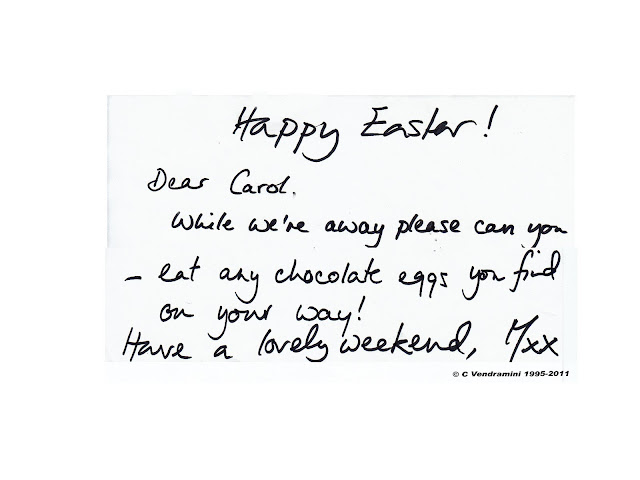 Happy Easter!
Dear Carol.
While we're away please can you
- eat any chocolate eggs you find
on your way!
Have a lovely weekend, M/xx
© C Vendramini 1995-2011